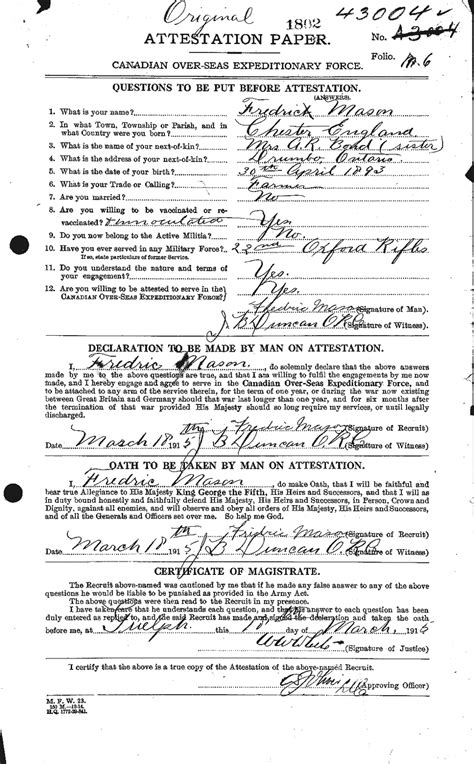 Original
1802
43004
ATTESTATION PAPER.
No. A3004
Folio.
CANADIAN OVER-SEAS EXPEDITIONARY FORCE.
QUESTIONS TO BE PUT BEFORE ATTESTATION.
(ANSWERS)
1. What is your name? Fredrick Mason
2. In what Town, Township or Parish, and in what Country were you born? Chester England
3. What is the name of your next-of-kin? Mrs A.R. Bond (sister)
4. What is the address of your next-of-kin? Drumbo Ontario
5. What is the date of your birth? 30th April 1893
6. What is your Trade or Calling? Farmer
7. Are you married? No
8. Are you willing to be vaccinated or re-vaccinated? Innoculation Yes
9. Do you now belong to the Active Militia? No.
10. Have you ever served in any Military Force? 22nd Oxford Rifles
If so, state particulars of former Service.
11. Do you understand the nature and terms of your engagement? Yes.
12. Are you willing to be attested to serve in the CANADIAN OVER-SEAS EXPEDITIONARY FORCE? Yes.
Fredric Mason (Signature of Man).
J. B. Duncan (Signature of Witness).
DECLARATION TO BE MADE BY MAN ON ATTESTATION.
I, Fredric Mason, do solemnly declare that the above answers
made by me to the above questions are true, and that I am willing to fulfil the engagements by me now
made, and I hereby engage and agree to serve in the Canadian Over-Seas Expeditionary Force, and
to be attached to any arm of the service therein, for the term of one year, or during the war now existing
between Great Britain and Germany should that war last longer than one year, and for six months after
the termination of that war provided His Majesty should so long require my services, or until legally
discharged.
Fredric Mason (Signature of Recruit)
Date March 18th 1915 J B Duncan (Signature of Witness)
OATH TO BE TAKEN BY MAN ON ATTESTATION.
I, Fredric Mason, do make Oath, that I will be faithful and
bear true Allegiance to His Majesty King George the Fifth, His Heirs and Successors, and that I will as
in duty bound honestly and faithfully defend His Majesty, His Heirs and Successors, in Person, Crown and
Dignity, against all enemies, and will observe and obey all orders of His Majesty, His Heirs and Successors,
and of all the Generals and Officers set over me. So help me God.
Fredric Mason (Signature of Recruit)
Date March 18th 1915 J B Duncan (Signature of Witness)
CERTIFICATE OF MAGISTRATE.
The Recruit above-named was cautioned by me that if he made any false answer to any of the above
questions he would be liable to be punished as provided in the Army Act.
The above questions were then read to the Recruit in my presence.
I have taken care that he understands each question, and that his answer to each question has been
duly entered as replied to, and the said Recruit has made and signed the declaration and taken the oath
before me, at Guelph this 18th day of March, 1915
(Signature of Justice)
I certify that the above is a true copy of the Attestation of the above-named Recruit.
(Approving Officer)
M. F. W. 23.
H.Q. 1772-39-841.